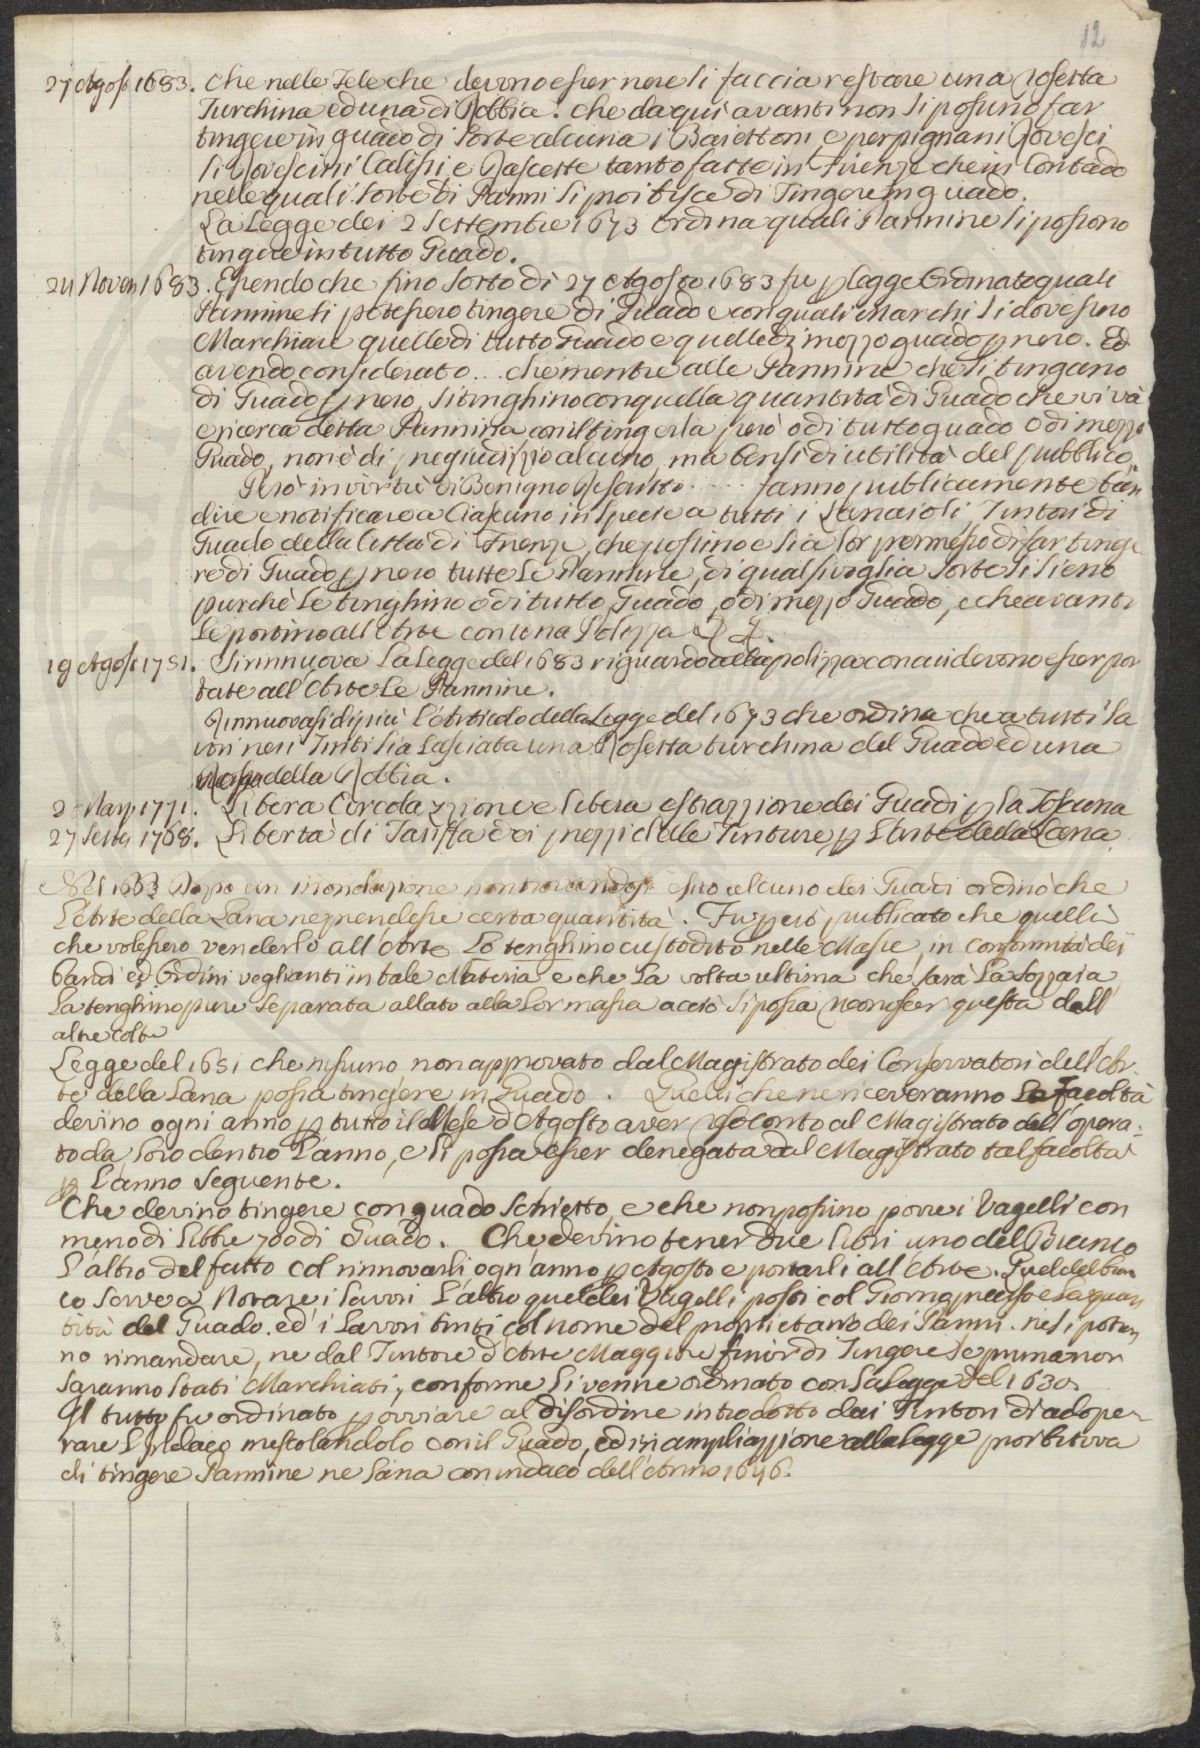 12
27 Agos 1683. Che nelle Tele che devino esser nere si faccia restare una Rosetta
Turchina ed una di Robbia. Che da qui avanti non si possino far
tingere in guado di sorte alcuna i Baiettoni, e perpignani Rovesci
li Rovescini Calisi e Rascette tanto fatte in Firenze che in Contado
nelle quali sorte di Panni si proibisce di Tingere in guado.
La Legge dei 2 Settembre 1673 ordina quali Pannine si possono
tingere in tutto Guado.
24 Novem 1683. Essendo che sino sotto dì 27 Agosto 1683 fu p Legge Ordinato quali
Pannine si potessero tingere di Guado e con quali Marchi si dovessero
Marchiare quelle di tutto Guado e quelle di mezzo guado p nero. Ed
avendo considerato .. che mentre alle Pannine che si tingano
di Guado p nero, si tinghino con quella quantità di Guado che vi và
e ricerca detta Pannina con il tingerla però o di tutto guado o di mezzo
Guado, non è di pregiudizzio alcuno, ma bensì di utilità del pubblico,
Però in virtù di Benigno Rescritto .... fanno publicamente ban
dire e notificare a Ciascuno in specie a tutti i Lanaioli, Tintori di
Guado della Città di Firenze, che possino e sia lor permesso di far tinge
re di Guado p nero tutte le Pannine, di qualsivoglia sorte si sieno
purchè le tinghino o di tutto Guado, o di mezzo Guado, e che avanti
le portino all'Arte con una Polizza
19 Agos 1751. Si rinnuova la Legge del 1683 riguardo alla polizza con cui devono esser por
tate all'Arte le Pannine.
Rinnuovasi di più l'Articolo della Legge del 1673 che ordina che a tutti i la
vori neri Tinti sia Lasciata una Rosetta turchina del Guado ed una
Rossa della Robbia.
2 Marz 1771. Libera Circolazzione e libera estrazzione dei Guadi p la Toscana
27 Sette 1768. Libertà di Tariffa dei prezzi delle Tinture p l'Arte della Lana.
Nel 1663 Dopo un inondazione non trovandosi esito alcuno dei Guadi ordinò che
l'Arte della Lana ne prendesse certa quantità. Fu però publicato che quelli
che volessero venderlo all'Arte Lo tenghino custodito nelle Masse, in conformità dei
bandi ed Ordini veglianti in tale Materia e che La volta ultima che sarà La sozzaia
La tenghino pure separata allato alla Lor massa acciò si possa riconoscer questa dall
altre colte
Legge del 1651 che nissuno non approvato dal Magistrato dei Conservatori dell'Ar-
te della Lana possa tingere in Guado. Quelli che ne riceveranno La facoltà
devino ogni anno p tutto il Mese d'Agosto aver Reso Conto al Magistrato dell'opera-
to da loro dentro L'anno, e Li possa esser denegata dal Magistrato tal facoltà
p L'anno seguente.
Che devino tingere con guado schietto, e che non possino porre i Vagelli con
meno di libbre 700 di Guado. Che devino tener due libri uno del Bianco
L'altro del fatto col rinnovarli ogn'anno p Agosto e portarli all'Arte. Quel del bian
co serve a Notare i lavori L'altro quel dei Vagelli posti col Giorno preciso e la quan
tità del Guado. ed i Lavori tinti col nome del proprietario dei Panni. ne si poten
no rimandare, ne dal Tintore d'Arte Maggiore finir di Tingere se prima non
saranno stati Marchiati, conforme li venne ordinato con la Legge del 1630.
Il tutto fu ordinato p ovviare al disordine introdotto dai Tintori di adope-
rare L'Indaco mescolandolo con il Guado, ed in ampliazzione alla Legge proibitiva
di tingere Pannine ne lana con indaco dell'Anno 1646.